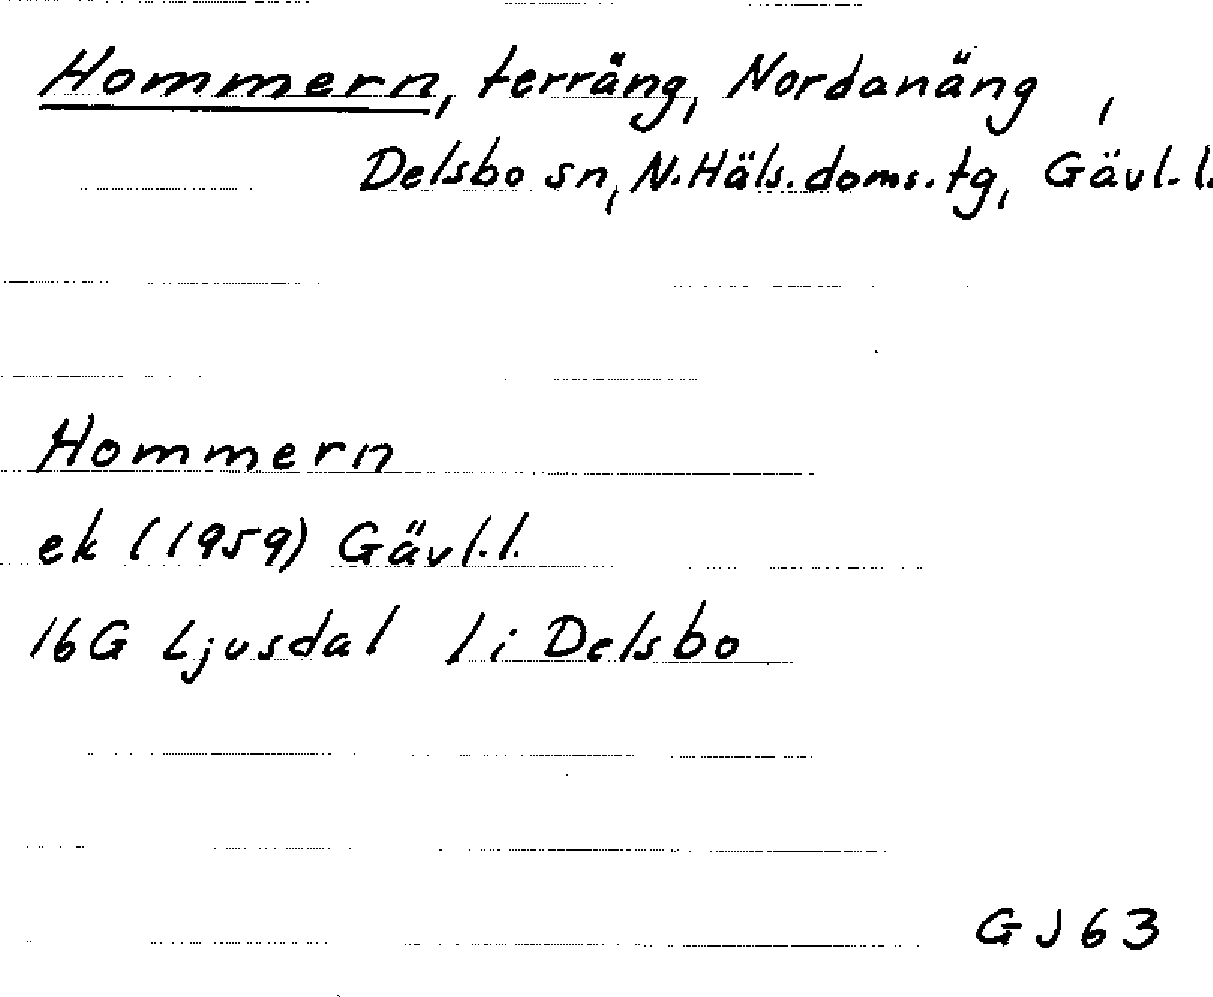 Hommern, terräng, Nordanäng ,
Delsbo sn, N. Häls. doms. tg, Gävl. l.
Hommern
ek (1959) Gävl. l.
16G Ljusdal 1 i Delsbo
GJ63